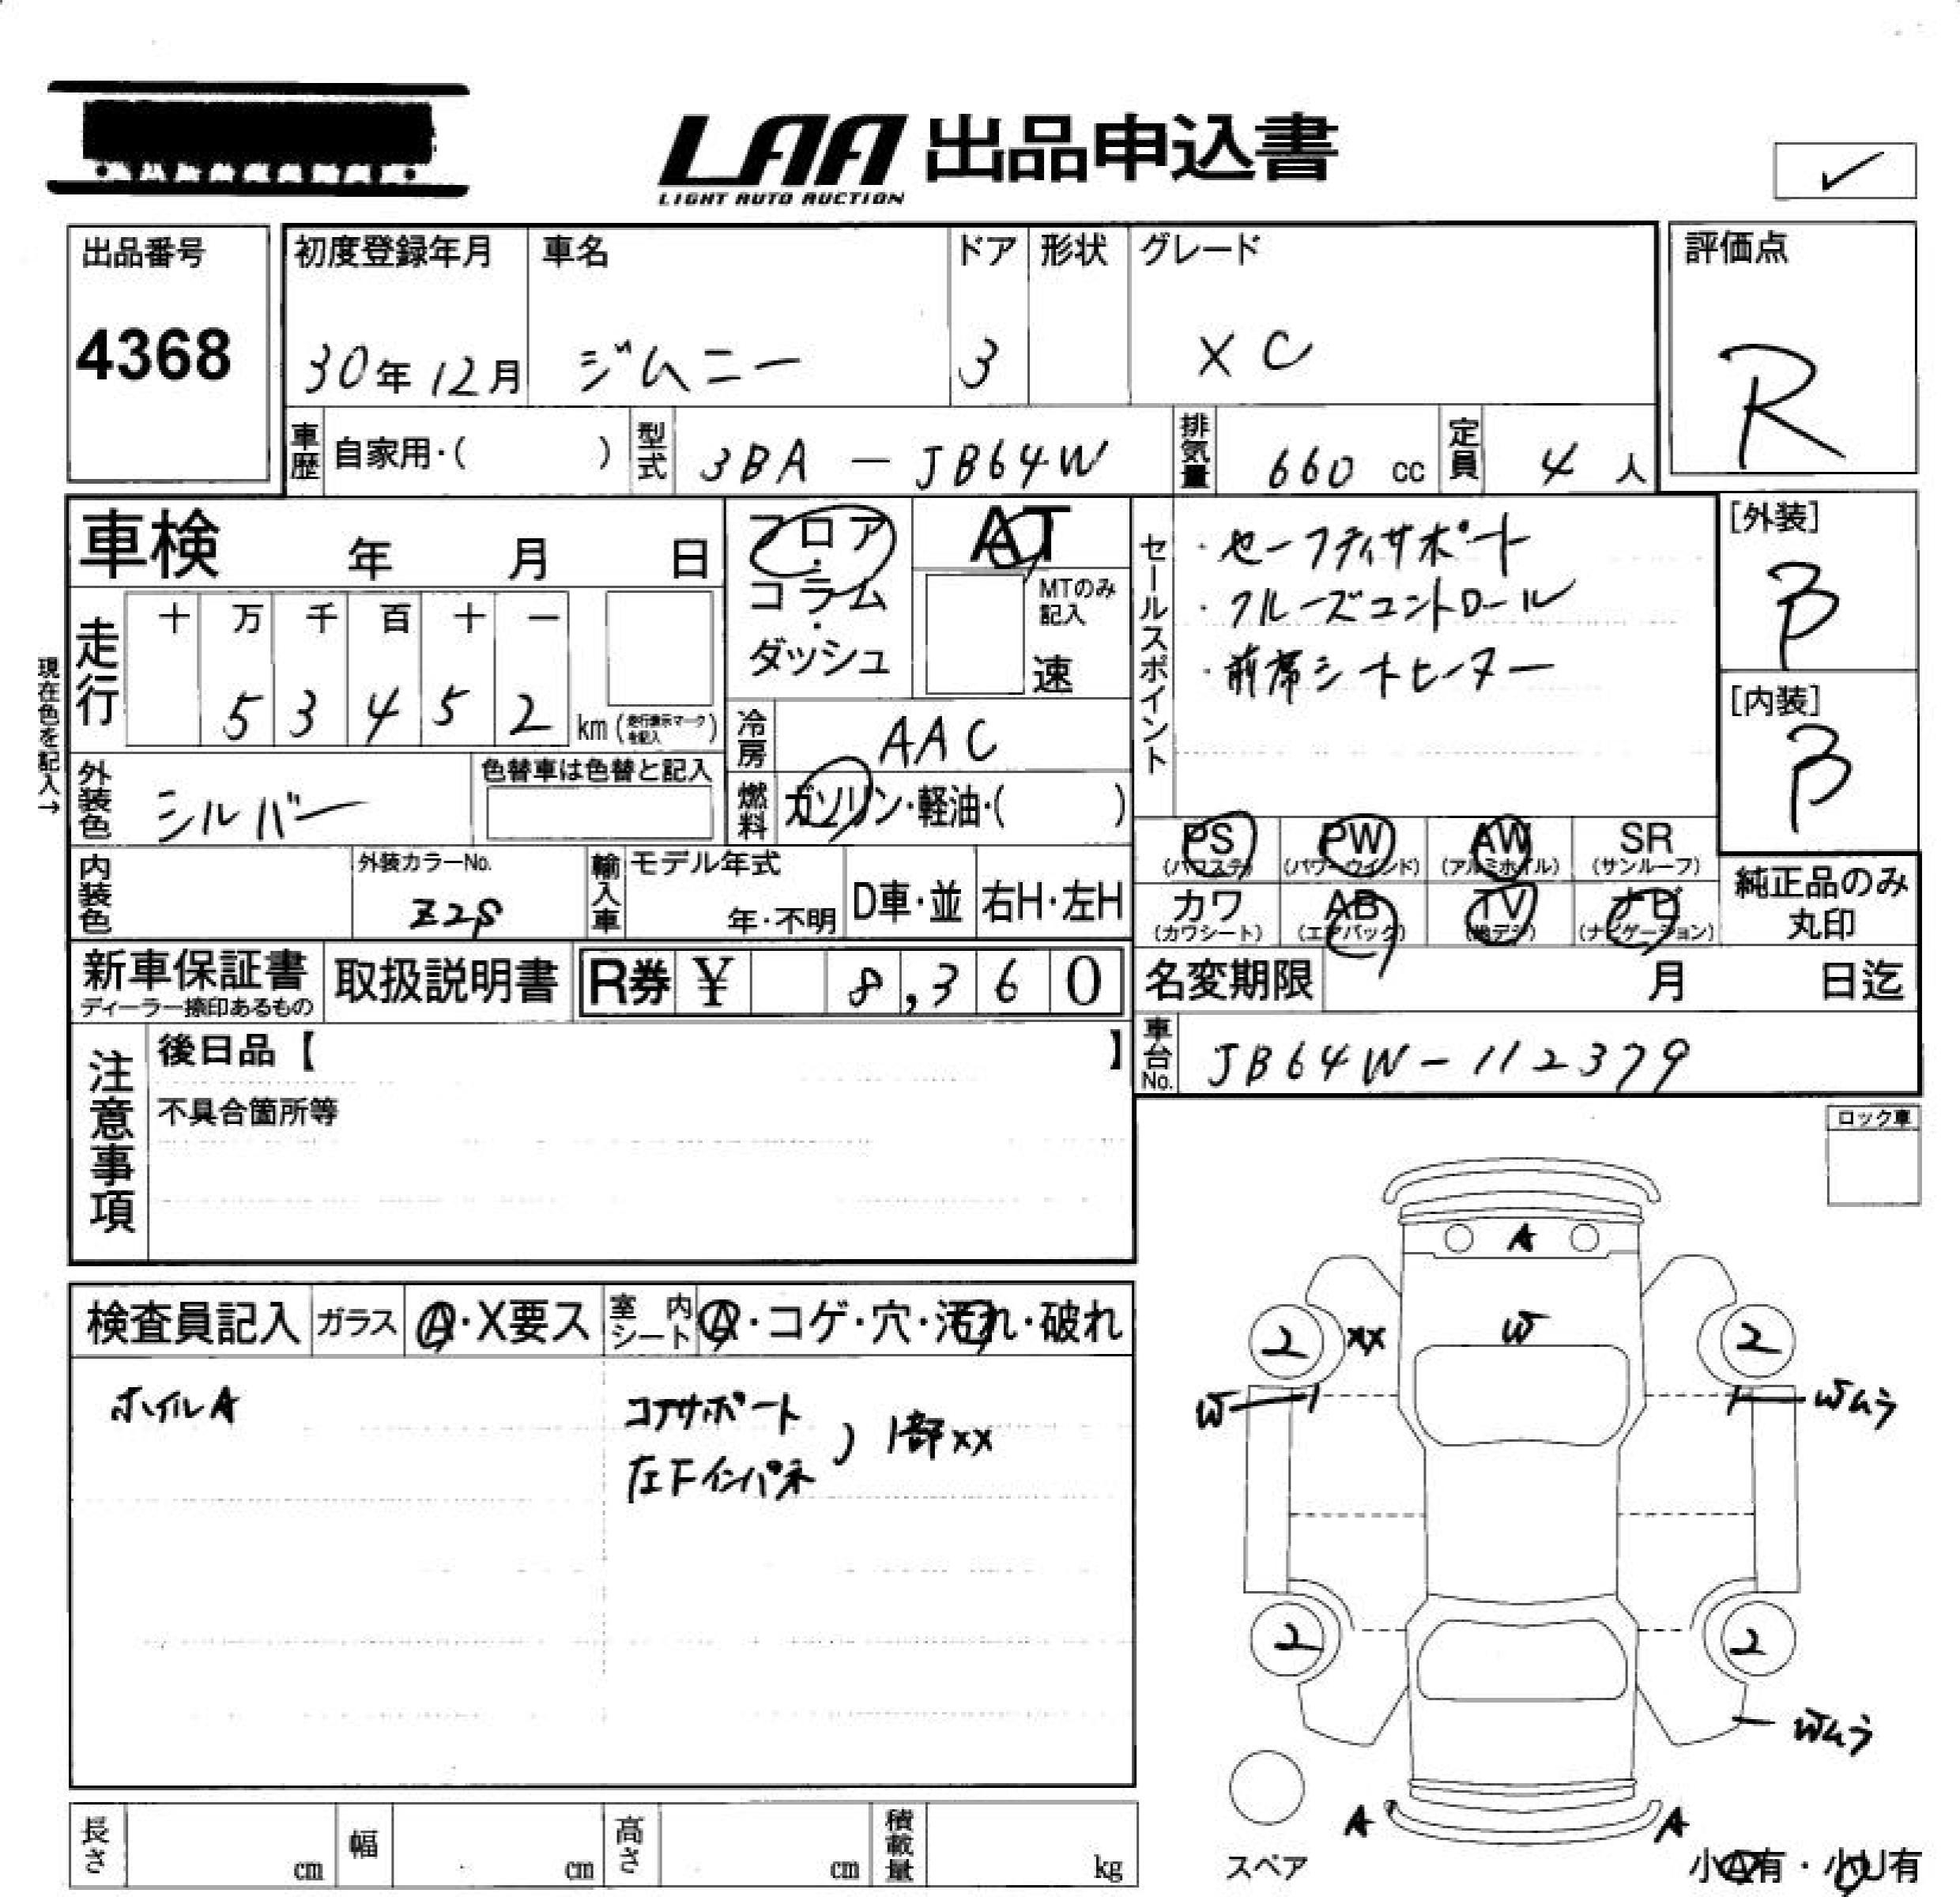 LAA 出品申込書
LIGHT AUTO AUCTION
✓
出品番号
4368
初度登録年月
30年12月
車名
ジムニー
ドア
3
形状
グレード
XC
評価点
R
車歴 自家用・( )
型式 3BA-JB64W
排気量 660 cc
定員 4 人
車検 年 月 日
フロア・コラム・ダッシュ
AT
MTのみ記入
速
セールスポイント
・セーフティサポート
・クルーズコントロール
・前席シートヒーター
[外装]
B
[内装]
B
現在色を記入→
走行
十 万 千 百 十 一
5 3 4 5 2 km (走行表示マークを記入)
冷房 AAC
外装色 シルバー
色替車は色替と記入
燃料 ガソリン・軽油・( )
PS (パワステ)
PW (パワーウインド)
AW (アルミホイル)
SR (サンルーフ)
カワ (カワシート)
AB (エアバック)
TV (地デジ)
ナビ (ナビゲーション)
純正品のみ丸印
内装色
外装カラーNo.
Z2S
輸入車
モデル年式
年・不明
D車・並
右H・左H
新車保証書
ディーラー捺印あるもの
取扱説明書
R券 ¥ 8,360
名変期限 月 日迄
車台No. JB64W-112379
注意事項
後日品【 】
不具合箇所等
ロック車
検査員記入
ガラス A・X要ス
室内シート A・コゲ・穴・汚れ・破れ
ホイルA
コアサポート
左Fインパネ ) 1部XX
A
W
2 XX 2
W
Wムラ
2 2
Wムラ
A A
スペア
小A有・小U有
長さ cm
幅 cm
高さ cm
積載量 kg